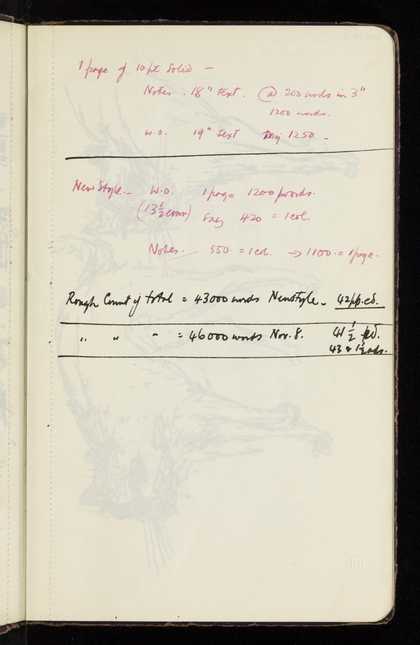 1 page of 10pt Solid —
Notes. 18" text. @ 200 words in 3"
1200 words.
W.O. 19" text Say 1250 -
New Style - W.O. 1 page 1200 words.
(13½ ems) Say 420 = 1 col.
Notes. — 550 = 1 col. → 1100 = 1 page.
Rough Count of total = 43000 words New Style - 42 pp. ed.
" " " = 46000 words Nov. 8. 41½ ed.
43 + 1½ ads.